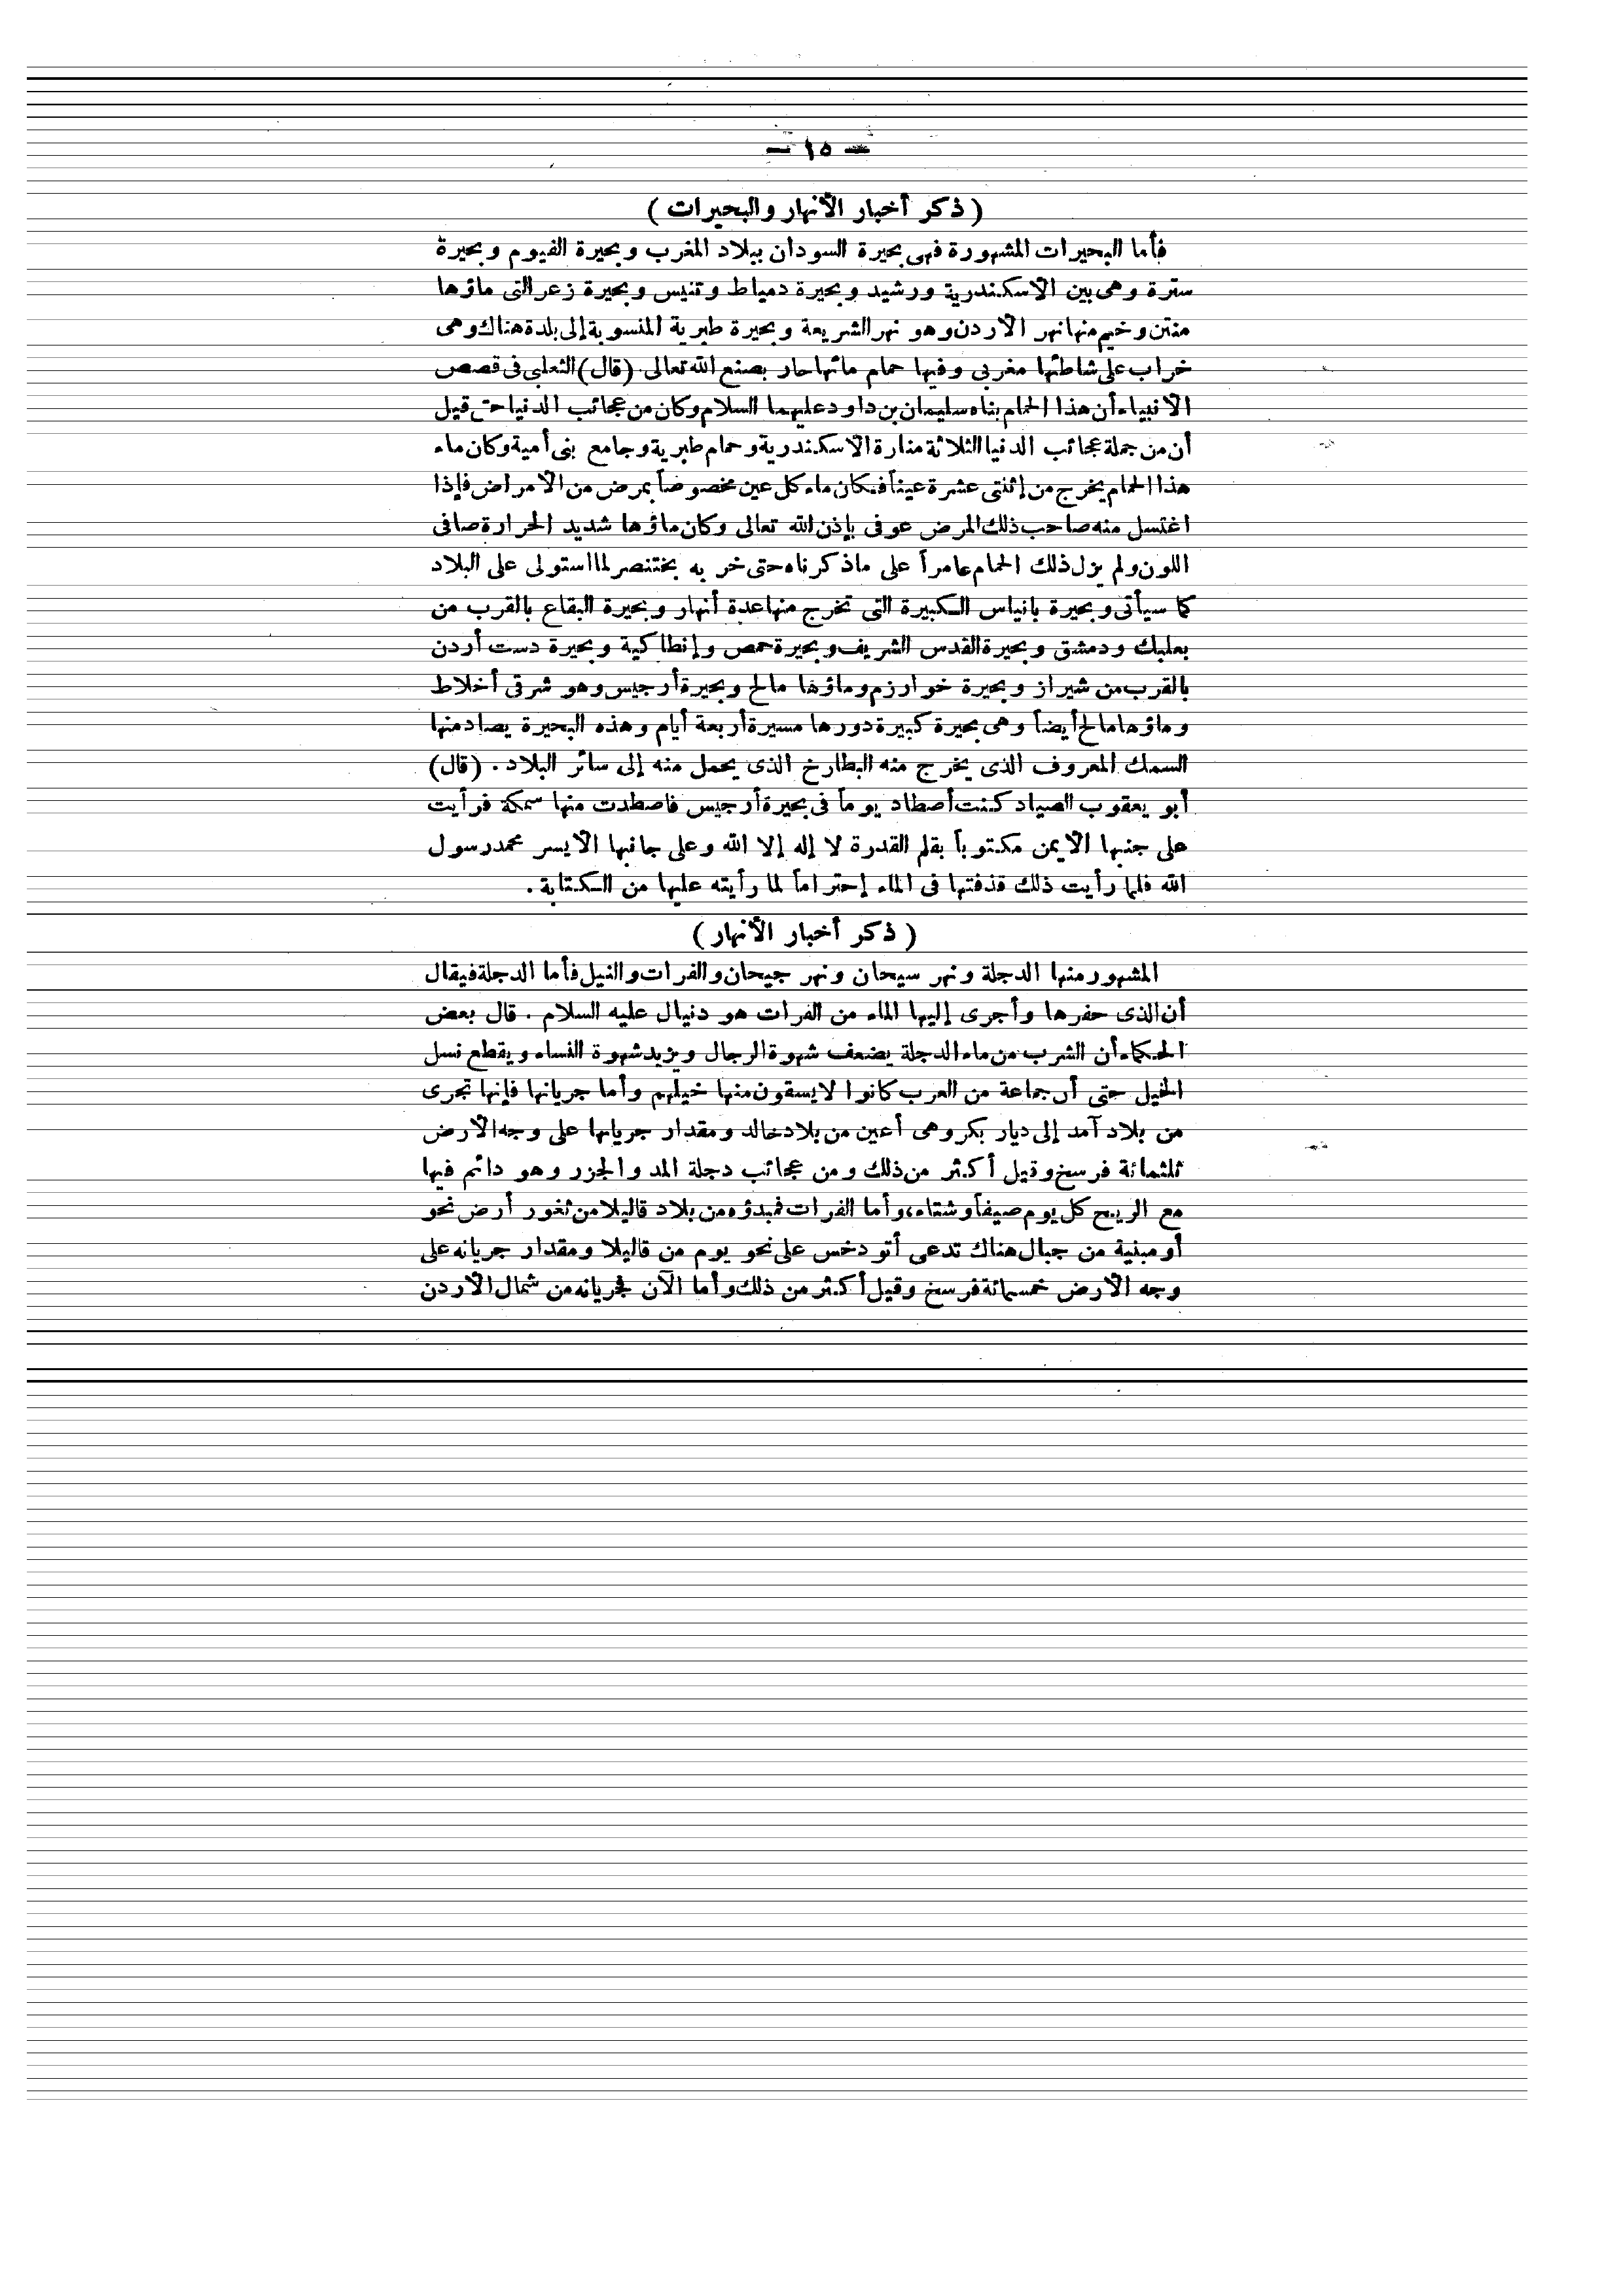 — ١٥ —
( ذكر أخبار الأنهار والبحيرات )
فأما البحيرات المشهورة فهى بحيرة السودان ببلاد المغرب وبحيرة الفيوم وبحيرة
سترة وهى بين الاسكندرية ورشيد وبحيرة دمياط وتنيس وبحيرة زعر التى ماؤها
منتن وخيم منها نهر الاردن وهو نهر الشريعة وبحيرة طبرية المنسوبة إلى بلدة هناك وهى
خراب على شاطئها مغربى وفيها حمام مائها حار بصنع الله تعالى. (قال) الثعلبى فى قصص
الانبياء أن هذا الحمام بناه سليمان بن داود عليهما السلام وكان من عجائب الدنيا حتى قيل
أن من جملة عجائب الدنيا الثلاثة منارة الاسكندرية وحمام طبرية وجامع بنى أمية وكان ماء
هذا الحمام يخرج من إثنتى عشرة عيناً فكان ماء كل عين مخصوصاً بمرض من الامراض فإذا
اغتسل منه صاحب ذلك المرض عوفى بإذن الله تعالى وكان ماؤها شديد الحرارة صافى
اللون ولم يزل ذلك الحمام عامراً على ماذكرناه حتى خر به بختنصر لما استولى على البلاد
كما سيأتى وبحيرة بانياس الكبيرة التى تخرج منها عدة أنهار وبحيرة البقاع بالقرب من
بعلبك ودمشق وبحيرة القدس الشريف وبحيرة حمص وإنطاكية وبحيرة دست أردن
بالقرب من شيراز وبحيرة خوارزم وماؤها مالح وبحيرة أرجيس وهو شرقى أخلاط
وماؤها مالح أيضاً وهى بحيرة كبيرة دورها مسيرة أربعة أيام وهذه البحيرة يصاد منها
السمك المعروف الذى يخرج منه البطارخ الذى يحمل منه إلى سائر البلاد . (قال)
أبو يعقوب الصياد كنت أصطاد يوماً فى بحيرة أرجيس فاصطدت منها سمكة فرأيت
على جنبها الايمن مكتوباً بقلم القدرة لا إله إلا الله وعلى جانبها الايسر محمد رسول
الله فلما رأيت ذلك قذفتها فى الماء إحتراماً لما رأيته عليها من الكتابة .
( ذكر أخبار الأنهار )
المشهور منها الدجلة ونهر سيحان ونهر جيحان والفرات والنيل فأما الدجلة فيقال
أن الذى حفرها وأجرى إليها الماء من الفرات هو دنيال عليه السلام . قال بعض
الحكماء أن الشرب من ماء الدجلة يضعف شهوة الرجال ويزيد شهوة النساء ويقطع نسل
الخيل حتى أن جماعة من العرب كانوا لا يسقون منها خيلهم وأما جريانها فإنها تجرى
من بلاد آمد إلى ديار بكر وهى أعين من بلاد خالد ومقدار جريانها على وجه الارض
ثلثمائة فرسخ وقيل أكثر من ذلك ومن عجائب دجلة المد والجزر وهو دائم فيها
مع الريح كل يوم صيفاً وشتاء، وأما الفرات فمبدؤه من بلاد قاليلا من ثغور أرض نحو
أو مبنية من جبال هناك تدعى أتو دخس على نحو يوم من قاليلا ومقدار جريانه على
وجه الارض خمسمائة فرسخ وقيل أكثر من ذلك وأما الآن فجريانه من شمال الاردن